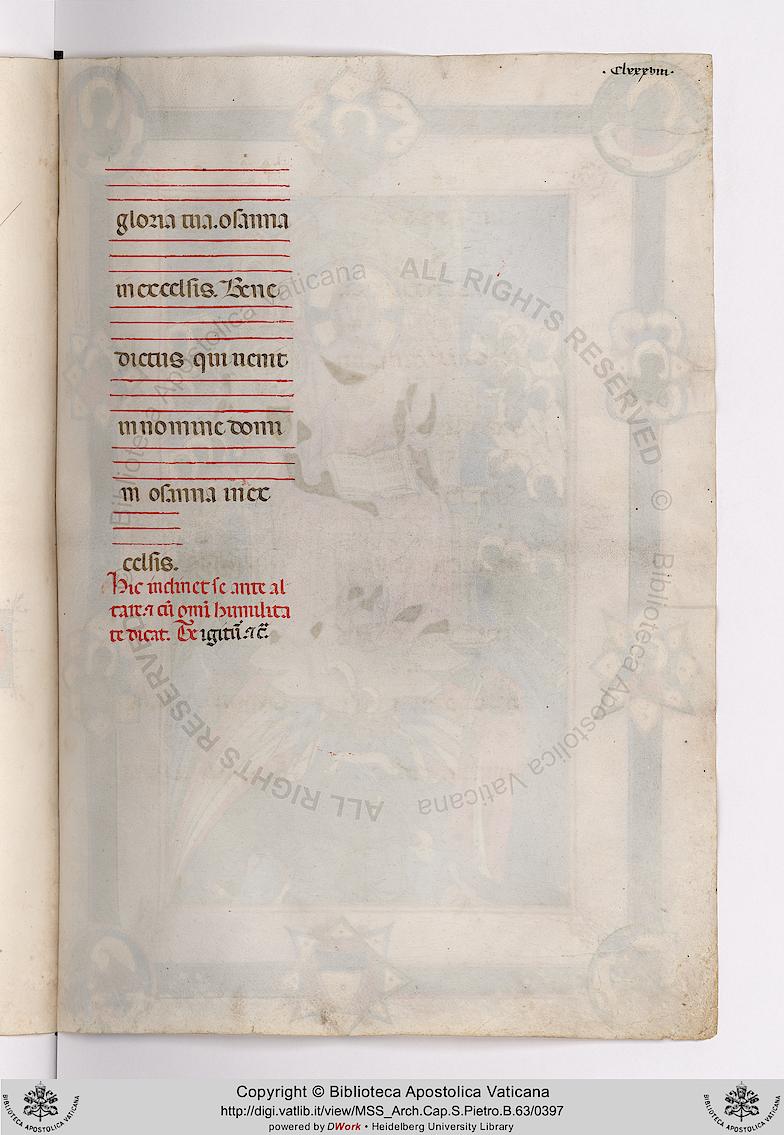 ·Clxxxviii·
gloria tua. osanna
in excelsis. Bene
dictus qui uenit
in nomine domi
ni osanna in ex
celsis.
Hic inclinet se ante al
tare ⁊ cū omī humilita
te dicat. Te igitur̄ ⁊ c̄.
Biblioteca Apostolica Vaticana
ALL RIGHTS RESERVED
©
Biblioteca Apostolica Vaticana
ALL RIGHTS RESERVED
Copyright © Biblioteca Apostolica Vaticana
http://digi.vatlib.it/view/MSS_Arch.Cap.S.Pietro.B.63/0397
powered by DWork • Heidelberg University Library
BIBLIOTECA APOSTOLICA VATICANA
BIBLIOTECA APOSTOLICA VATICANA